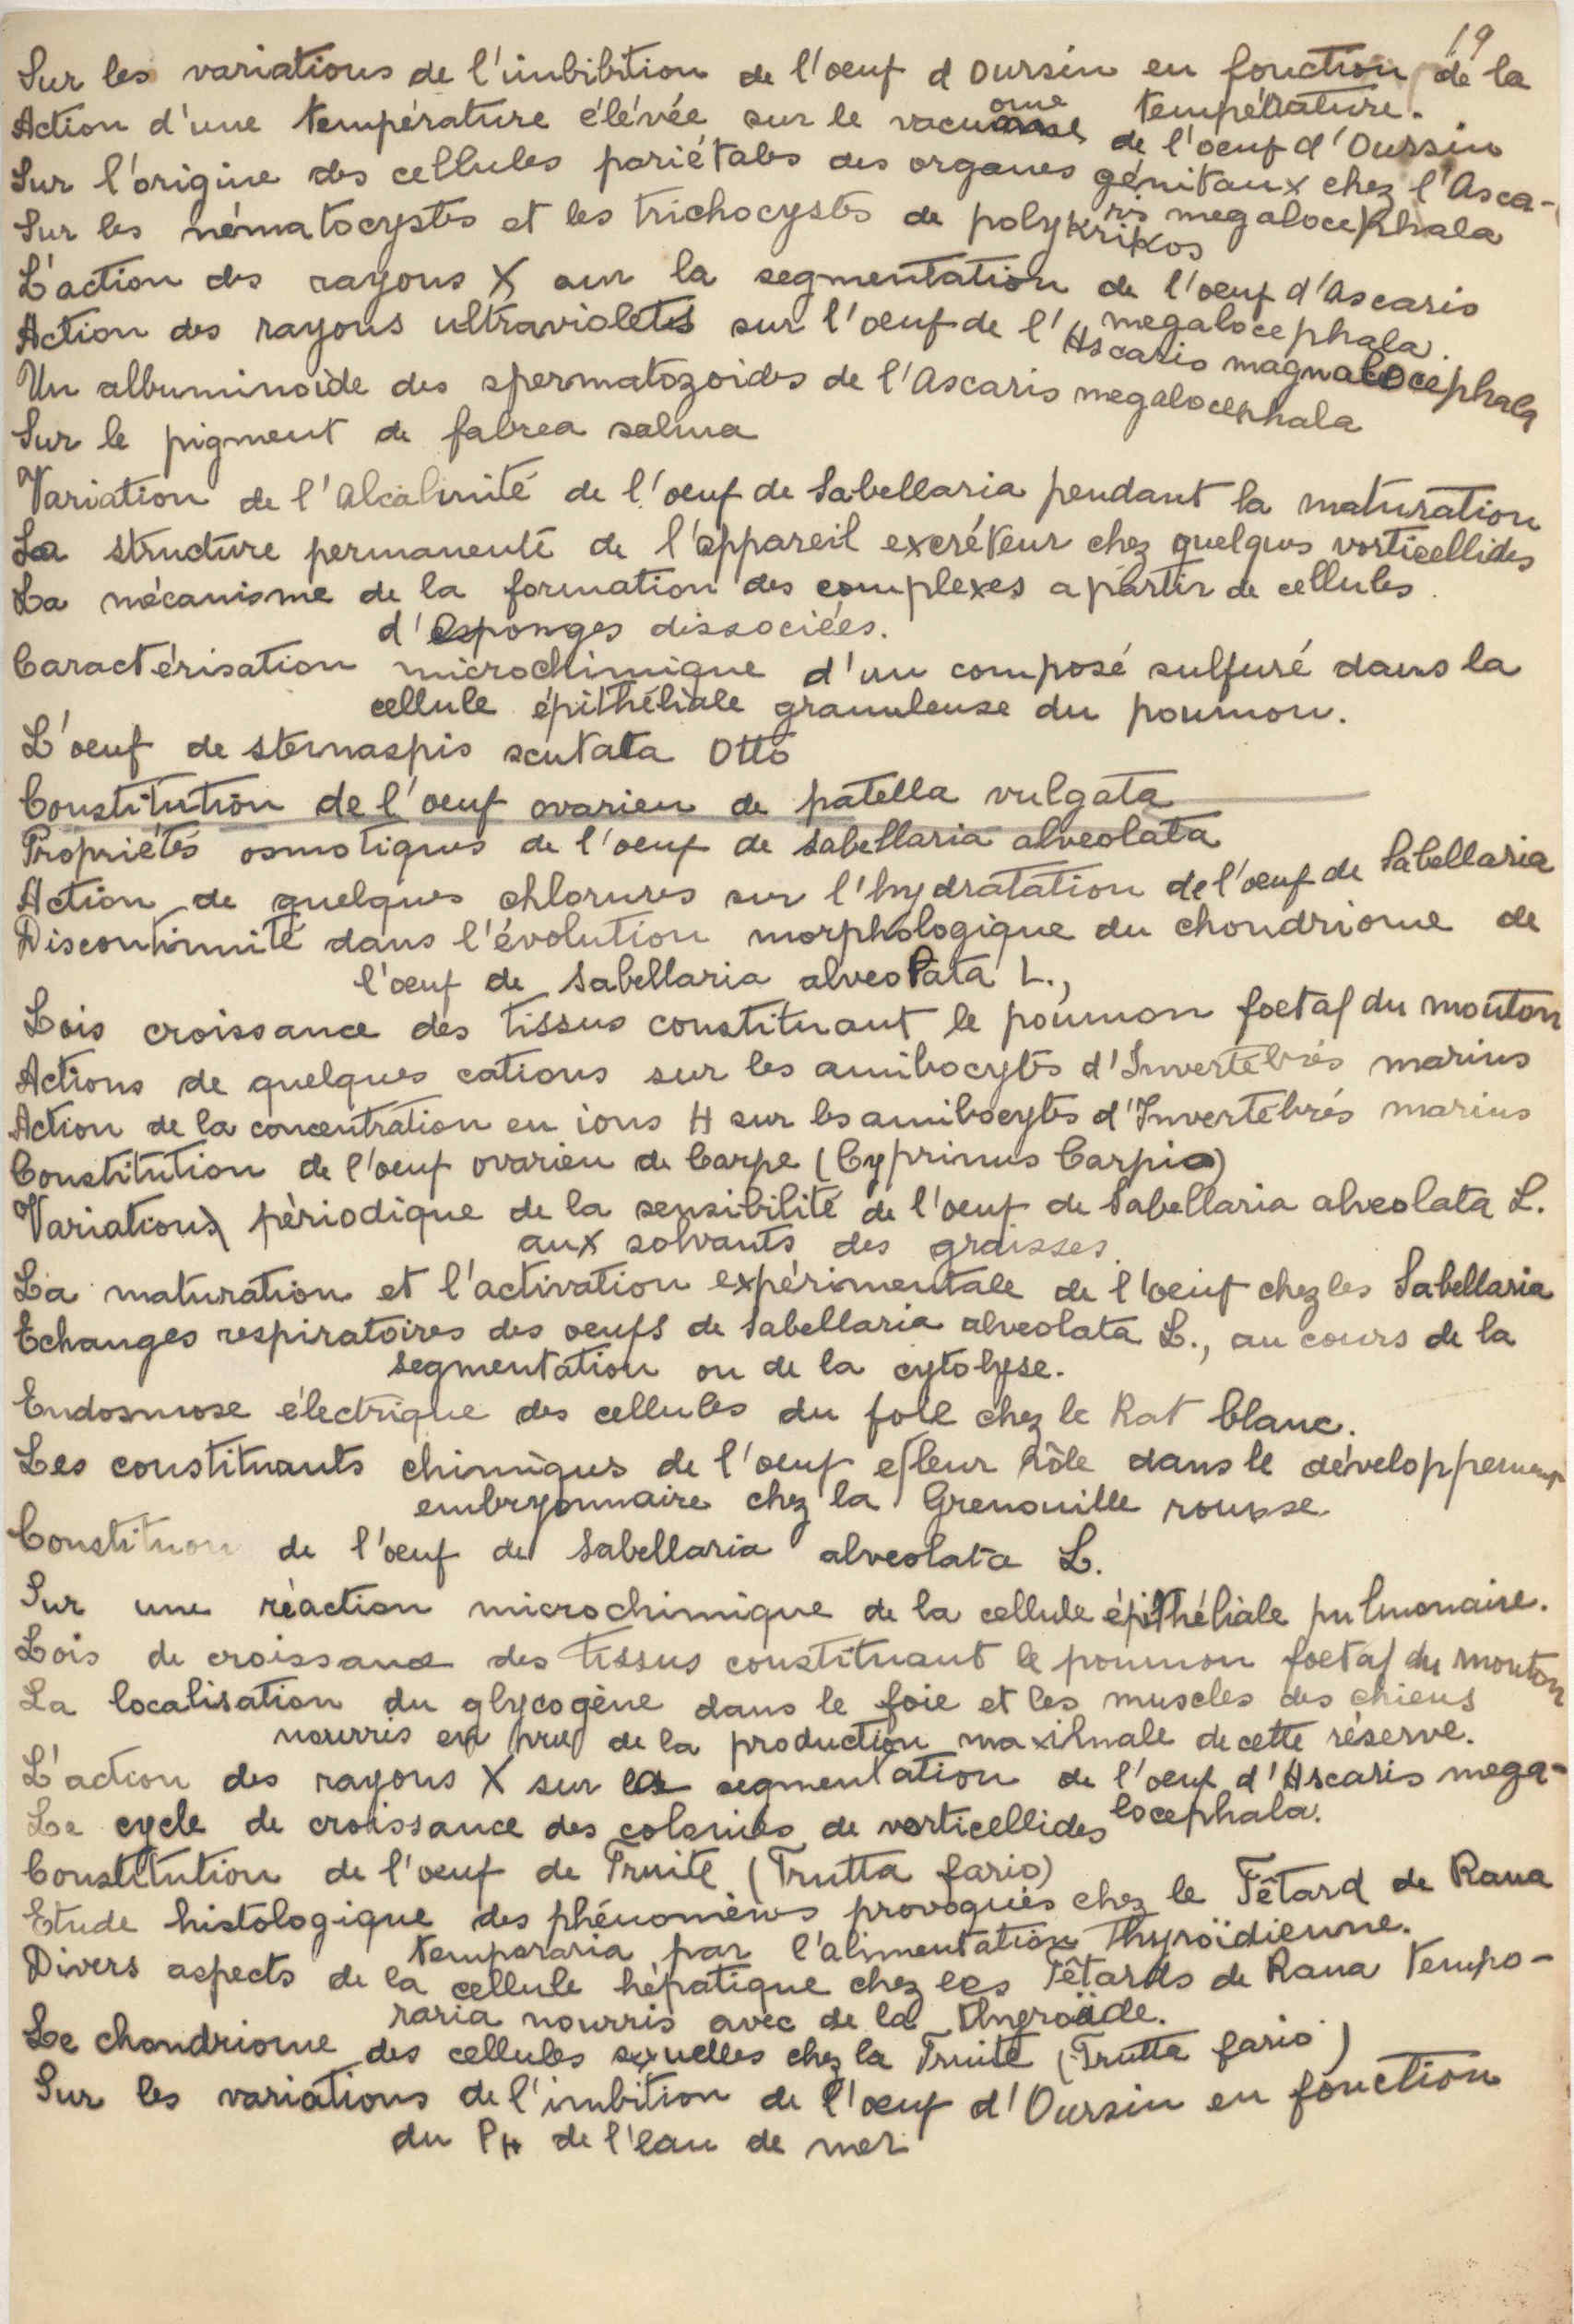 19
Sur les variations de l'imbibition de l'oeuf d'Oursin en fonction de la
température.
Action d'une température élévée sur le vacuome de l'oeuf d'Oursin
Sur l'origine des cellules pariétales des organes génitaux chez l'Asca-
ris megalocephala
Sur les nématocystes et les trichocystes de polykrikos
L'action des rayons X sur la segmentation de l'oeuf d'Ascaris
megalocephala.
Action des rayons ultraviolets sur l'oeuf de l'Ascaris magnalocephala
Un albuminoïde des spermatozoïdes de l'Ascaris megalocephala
Sur le pigment de fabrea salina
Variation de l'Alcalinité de l'oeuf de Sabellaria pendant la maturation
La structure permanente de l'appareil excréteur chez quelques vorticellides
La mécanisme de la formation des complexes a partir de cellules
d'esponges dissociées.
Caractérisation microchimique d'un composé sulfuré dans la
cellule épithéliale granuleuse du poumon.
L'oeuf de sternaspis scutata Otto
Constitution de l'oeuf ovarien de patella vulgata
Propriétés osmotiques de l'oeuf de Sabellaria alveolata
Action de quelques chlorures sur l'hydratation de l'oeuf de Sabellaria
Discontinuité dans l'évolution morphologique du chondriome de
l'oeuf de Sabellaria alveolata L.,
Lois croissance des tissus constituant le poumon foetal du mouton
Actions de quelques cations sur les amibocytes d'Invertébrés marins
Action de la concentration en ions H sur les amibocytes d'Invertébrés marins
Constitution de l'oeuf ovarien de Carpe (Cyprinus Carpio)
Variation périodique de la sensibilité de l'oeuf de Sabellaria alveolata L.
aux solvants des graisses.
La maturation et l'activation expérimentale de l'oeuf chez les Sabellaria
Echanges respiratoires des oeufs de Sabellaria alveolata L., au cours de la
segmentation ou de la cytolyse.
Endosmose électrique des cellules du foie chez le Rat blanc.
Les constituants chimiques de l'oeuf et leur rôle dans le développement
embryonnaire chez la Grenouille rousse.
Constitution de l'oeuf de Sabellaria alveolata L.
Sur une réaction microchimique de la cellule épithéliale pulmonaire.
Lois de croissance des tissus constituant le poumon foetal du mouton
La localisation du glycogène dans le foie et les muscles des chiens
nourris en de la production maximale de cette réserve.
L'action des rayons X sur la segmentation de l'oeuf d'Ascaris mega-
locephala.
Le cycle de croissance des colonies de vorticellides
Constitution de l'oeuf de Truite (Trutta fario)
Etude histologique des phénomènes provoqués chez le Têtard de Rana
temporaria par l'alimentation Thyroïdienne.
Divers aspects de la cellule hépatique chez les Têtards de Rana Tempo-
raria nourris avec de la Thyroïde.
Le chondriome des cellules sexuelles chez la Truite (Trutta fario)
Sur les variations de l'imbition de l'oeuf d'Oursin en fonction
du PH de l'eau de mer